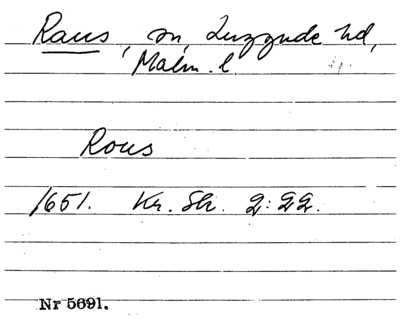 Raus, sn, Luggude hd,
Malm. l.
Rous
1651. Kr. Sk. 2:22.
Nr 5691.